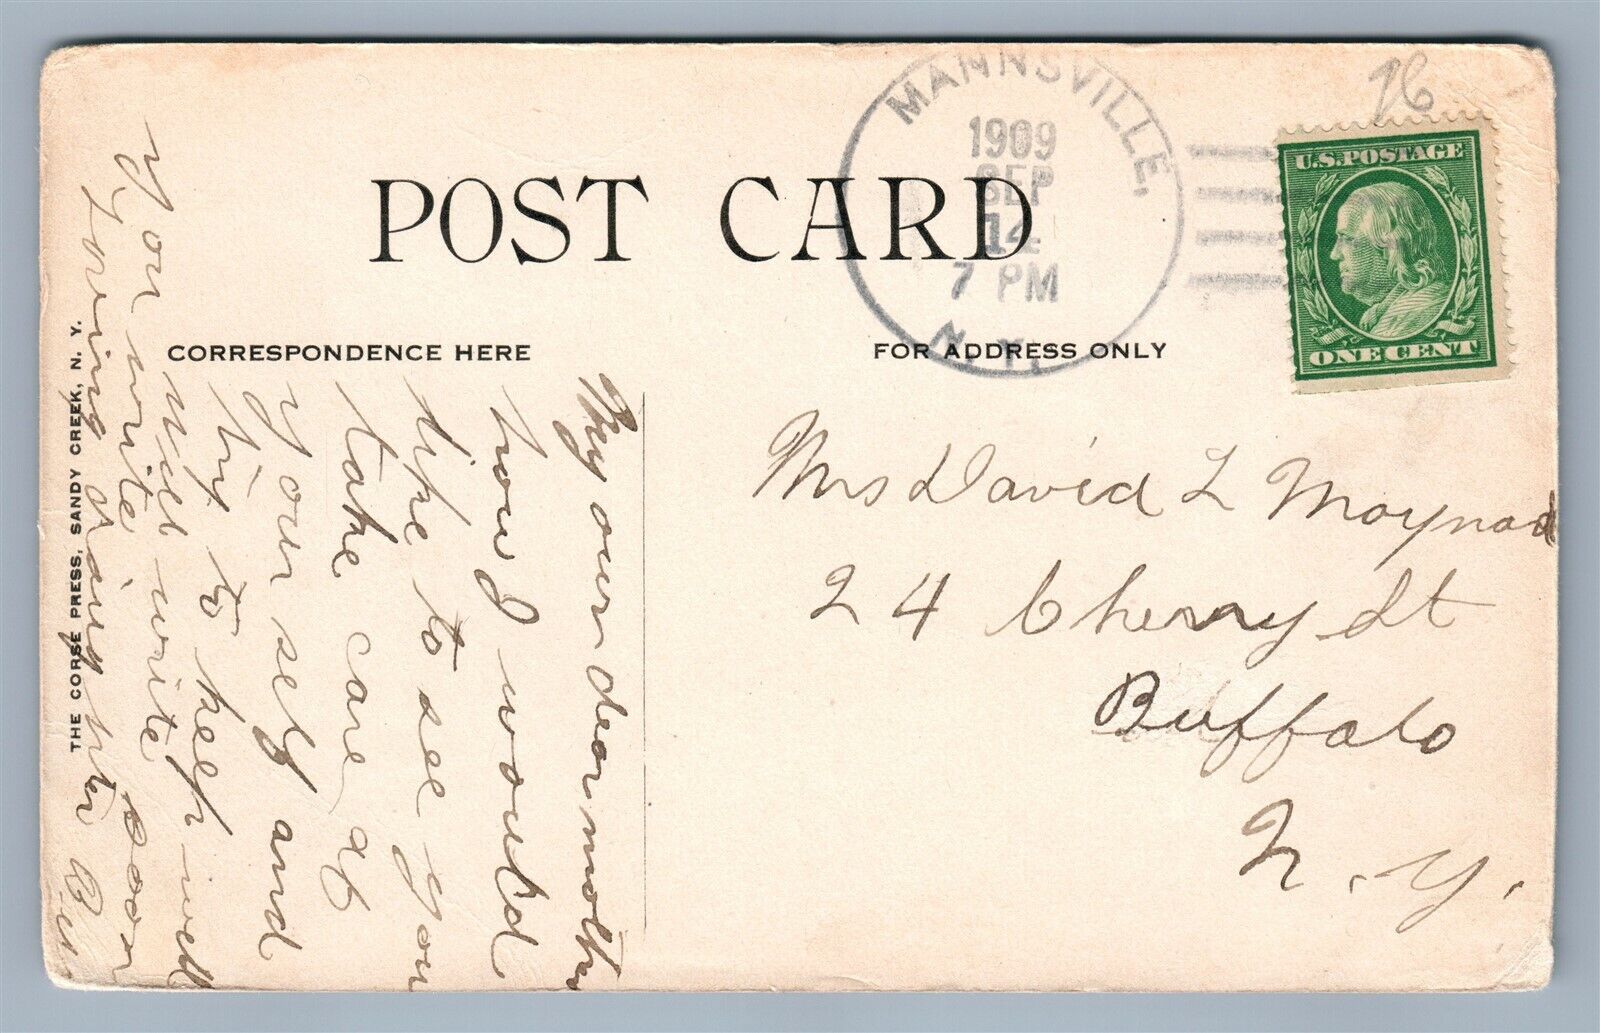 76
MANNSVILLE,
1909
SEP
14
7 PM
N.Y.
U.S. POSTAGE
ONE CENT
POST CARD
CORRESPONDENCE HERE
FOR ADDRESS ONLY
THE CORSE PRESS, SANDY CREEK, N. Y.
My own dear mother
how I would
like to see you
take care of
your self and
try to keep well
will write
you write soon
Loving
Mrs David L Maynard
24 Cherry St
Buffalo
N.Y.